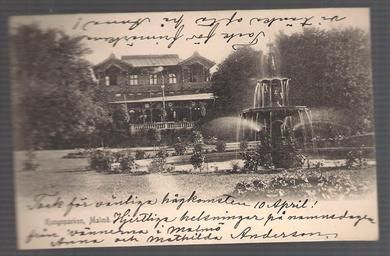 vi tänka ofta på Anna!
Tack för
Kungsparken, Malmö.
Tack för vänliga hågkomsten 10 April!
Hjertliga helsningar på namnsdagen
från vännerna i Malmö
Anna och Mathilda Anderson.